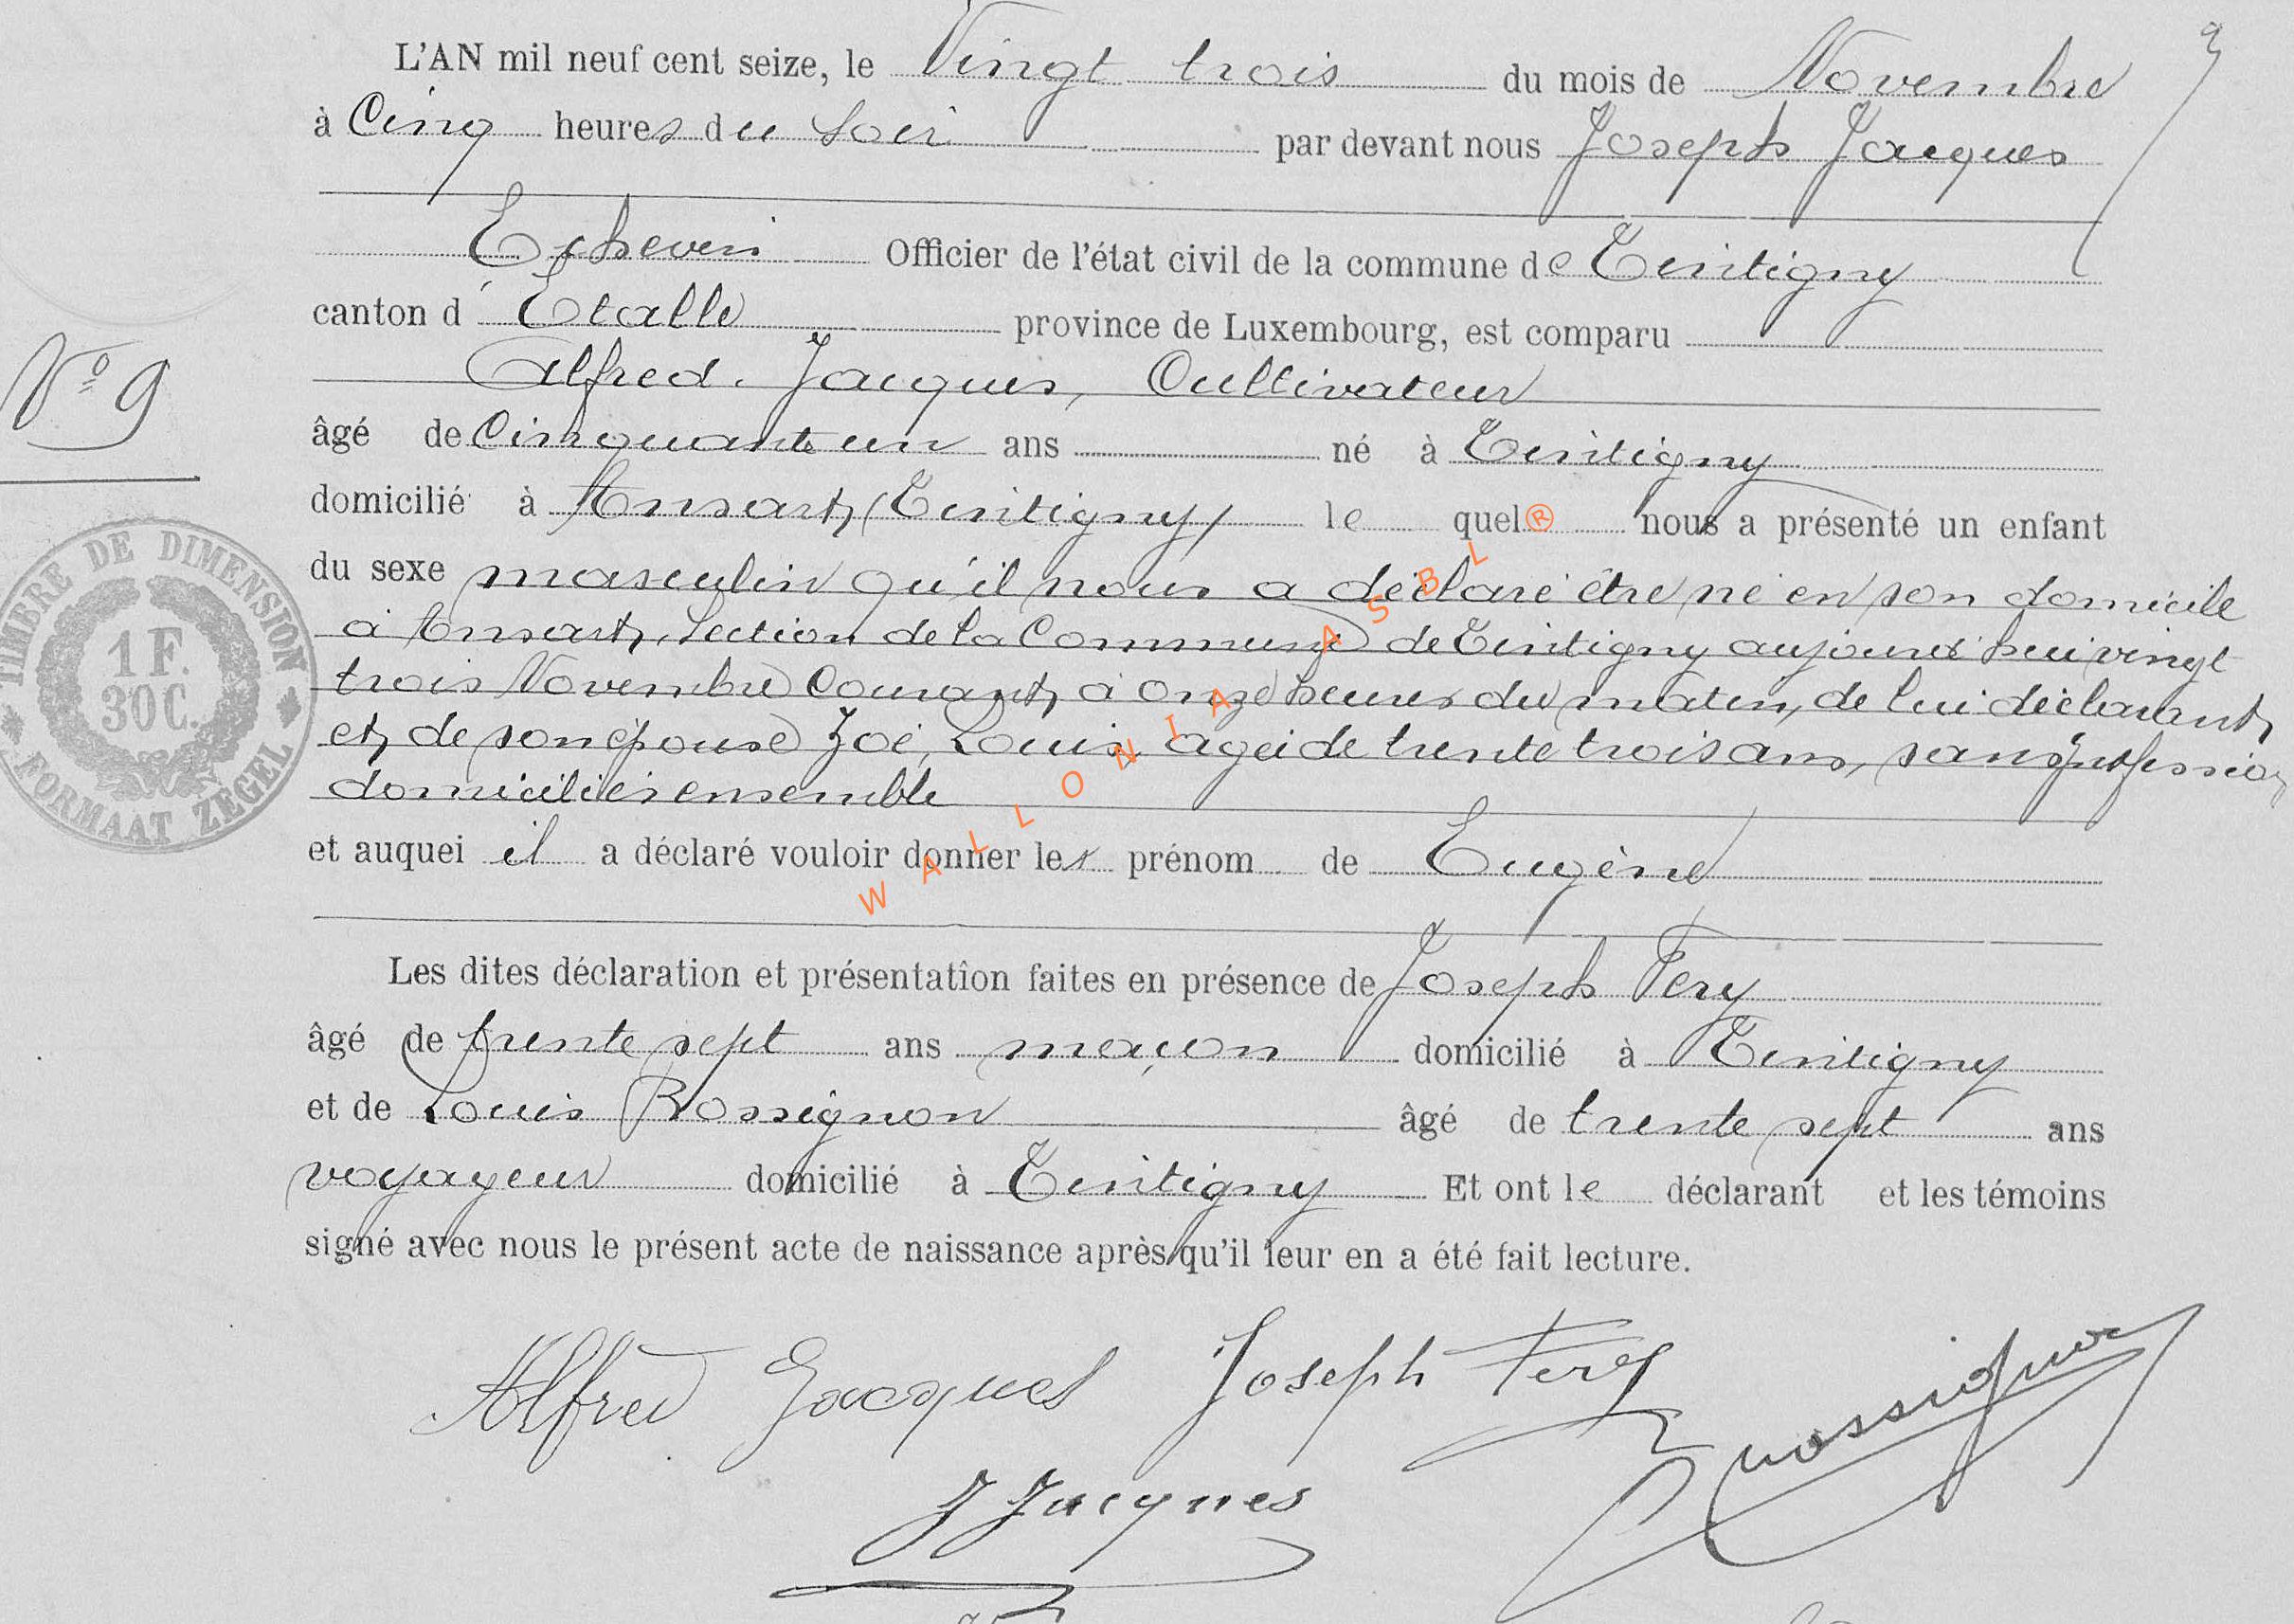 L'AN mil neuf cent seize, le Vingt trois du mois de Novembre
à Cinq heures du Soir par devant nous Joseph Jacques
Echevin Officier de l'état civil de la commune de Tintigny
canton d'Etalle province de Luxembourg, est comparu
Alfred Jacques, Cultivateur
N° 9
âgé de Cinquante un ans né à Tintigny
domicilié à Ansart, (Tintigny) le quel nous a présenté un enfant
du sexe masculin qu'il nous a déclaré être né en son domicile
à Ansart, Section de la Commune de Tintigny aujourd'hui vingt
trois Novembre Courant, à onze heures du matin, de lui déclarant
et de son épouse Zoé, Louis, agée de trente trois ans, sans profession
domiciliés ensemble
et auquel il a déclaré vouloir donner les prénom de Eugène
Les dites déclaration et présentation faites en présence de Joseph Fery
âgé de trente sept ans maçon domicilié à Tintigny
et de Louis Rossignon âgé de trente sept ans
voyageur domicilié à Tintigny Et ont le déclarant et les témoins
signé avec nous le présent acte de naissance après qu'il leur en a été fait lecture.
Alfred Jacques Joseph Fery Rossignon
J Jacques
TIMBRE DE DIMENSION
1 F.
30 C.
FORMAAT ZEGEL
WALLONIA ASBL ®